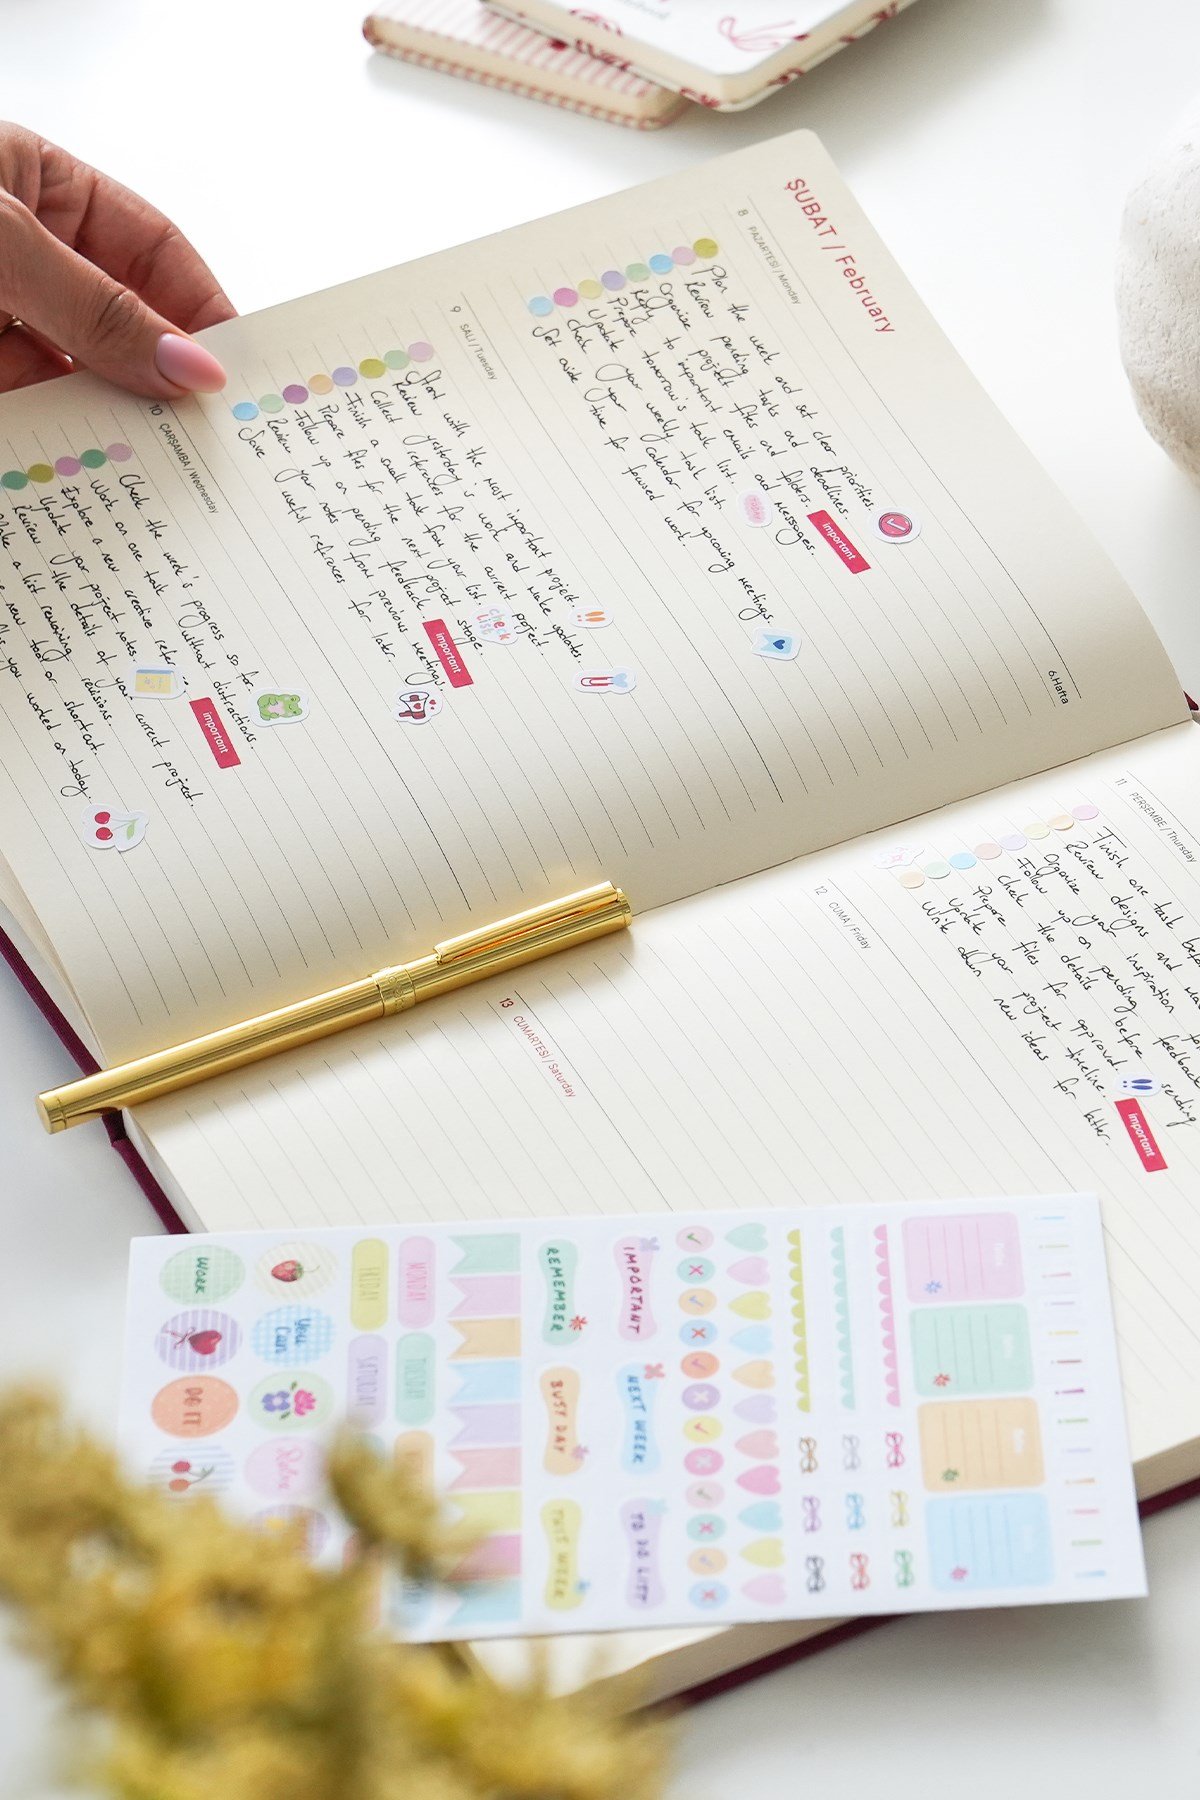 ŞUBAT / February
8 PAZARTESİ / Monday
Plan the week and set clear priorities.
Review pending tasks and deadlines.
Organize project files and folders.
Reply to important emails and messages.
Prepare tomorrow's task list.
Update your weekly task list.
Check your calendar for upcoming meetings.
Set aside time for focused work.
TODAY
important
9 SALI / Tuesday
Start with the most important project.
Review yesterday's work and make updates.
Collect references for the current project
Finish a small task from your list.
Prepare files for the next project stage.
Follow up on pending feedback.
Review your notes from previous meetings.
Save useful references for later.
check
LIST
important
10 ÇARŞAMBA / Wednesday
Check the week's progress so far.
Work on one task without distractions.
Explore a new creative refer
Update your project notes.
Review the details of your current project.
a list remaining revisions.
new tool or shortcut.
you worked on today.
important
6.Hafta
11 PERŞEMBE / Thursday
Finish one task
Review designs and
Organize your inspiration
Follow up on pending feedback
Check the details before sending
Prepare files for approval.
Update your project timeline.
Write down new ideas for later.
important
12 CUMA / Friday
13 CUMARTESİ / Saturday
WORK
You Can
DO IT
FRIDAY
MONDAY
SATURDAY
TUESDAY
REMEMBER
IMPORTANT
BUSY DAY
NEXT WEEK
THIS WEEK
TO DO LIST